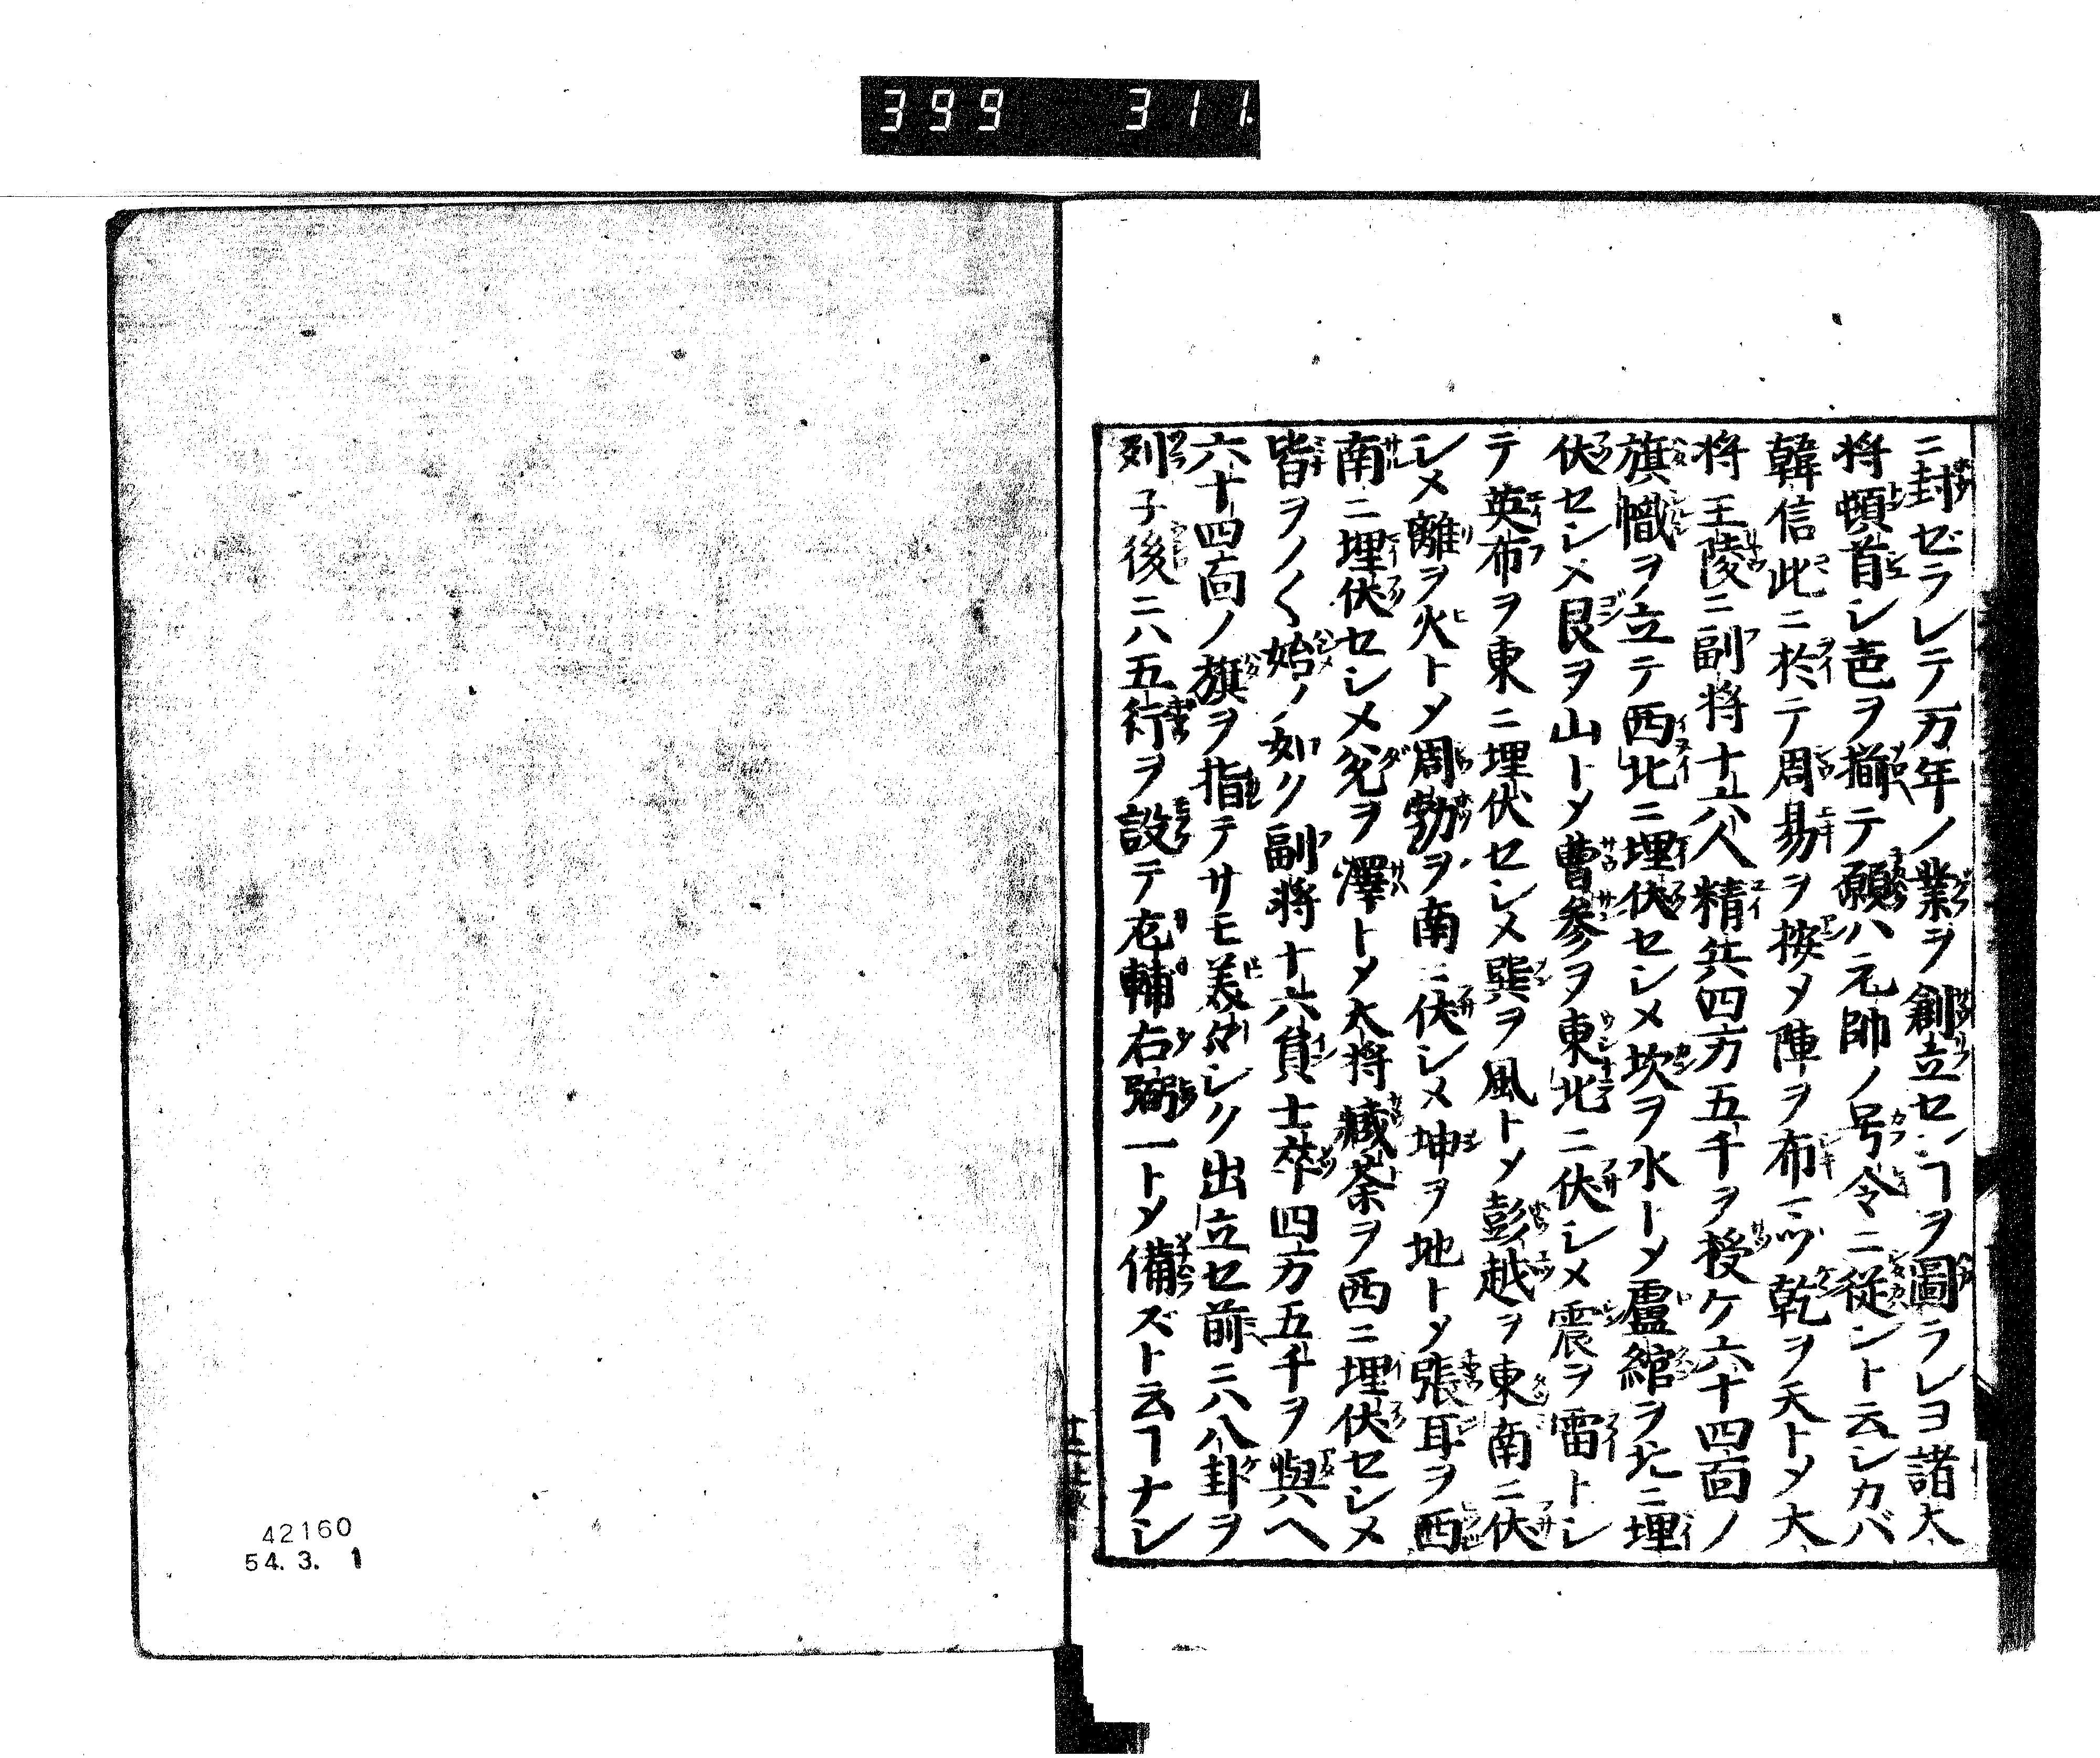 399 311.
ニ封ゼラレテ万年ノ業ヲ創立センヿヲ圖ラレヨ諸大
将頓首シ色ヲ揃テ願ハ元帥ノ号令ニ從ント云シカバ
韓信此ニ於テ周易ヲ按メ陣ヲ布ニハ乾ヲ天トメ大
将王陵ニ副将十六人精兵四万五千ヲ授ケ六十四面ノ
旗幟ヲ立テ西北ニ埋伏センメ坎ヲ水トメ盧綰ヲ北ニ埋
伏センメ艮ヲ山トメ曹参ヲ東北ニ伏シメ震ヲ雷トシ
テ英布ヲ東ニ埋伏センメ巽ヲ風トメ彭越ヲ東南ニ伏
シメ離ヲ火トメ周勃ヲ南ニ伏シメ坤ヲ地トメ張耳ヲ西
南ニ埋伏センメ兌ヲ澤トメ大将臧荼ヲ西ニ埋伏センメ
皆ヲノ〱始ノ如ク副将十六員士卒四万五千ヲ與ヘ
六十四面ノ旗ヲ指テサモ美々シク出立セ前ニハ八卦ヲ
列子後ニハ五行ヲ設テ左輔右弼一トメ備ズト云ヿナシ
42160
54. 3. 1